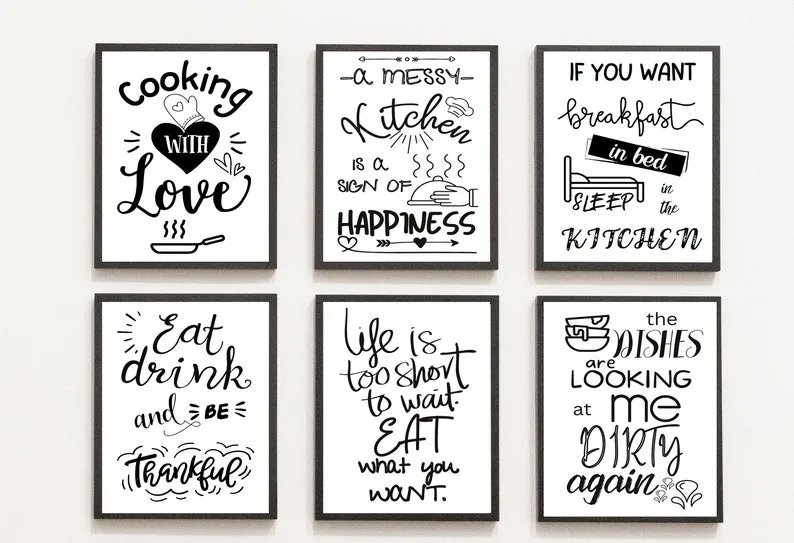 Cooking
WITH
Love
a MESSY
Kitchen
IS a
SIGN OF
HAPPINESS
IF YOU WANT
breakfast
in bed
SLEEP in
the
KITCHEN
Eat
drink
and BE
Thankful
life is
too short
to wait.
EAT
what you
WANT.
the
DISHES
are
LOOKING
at me
DIRTY
again